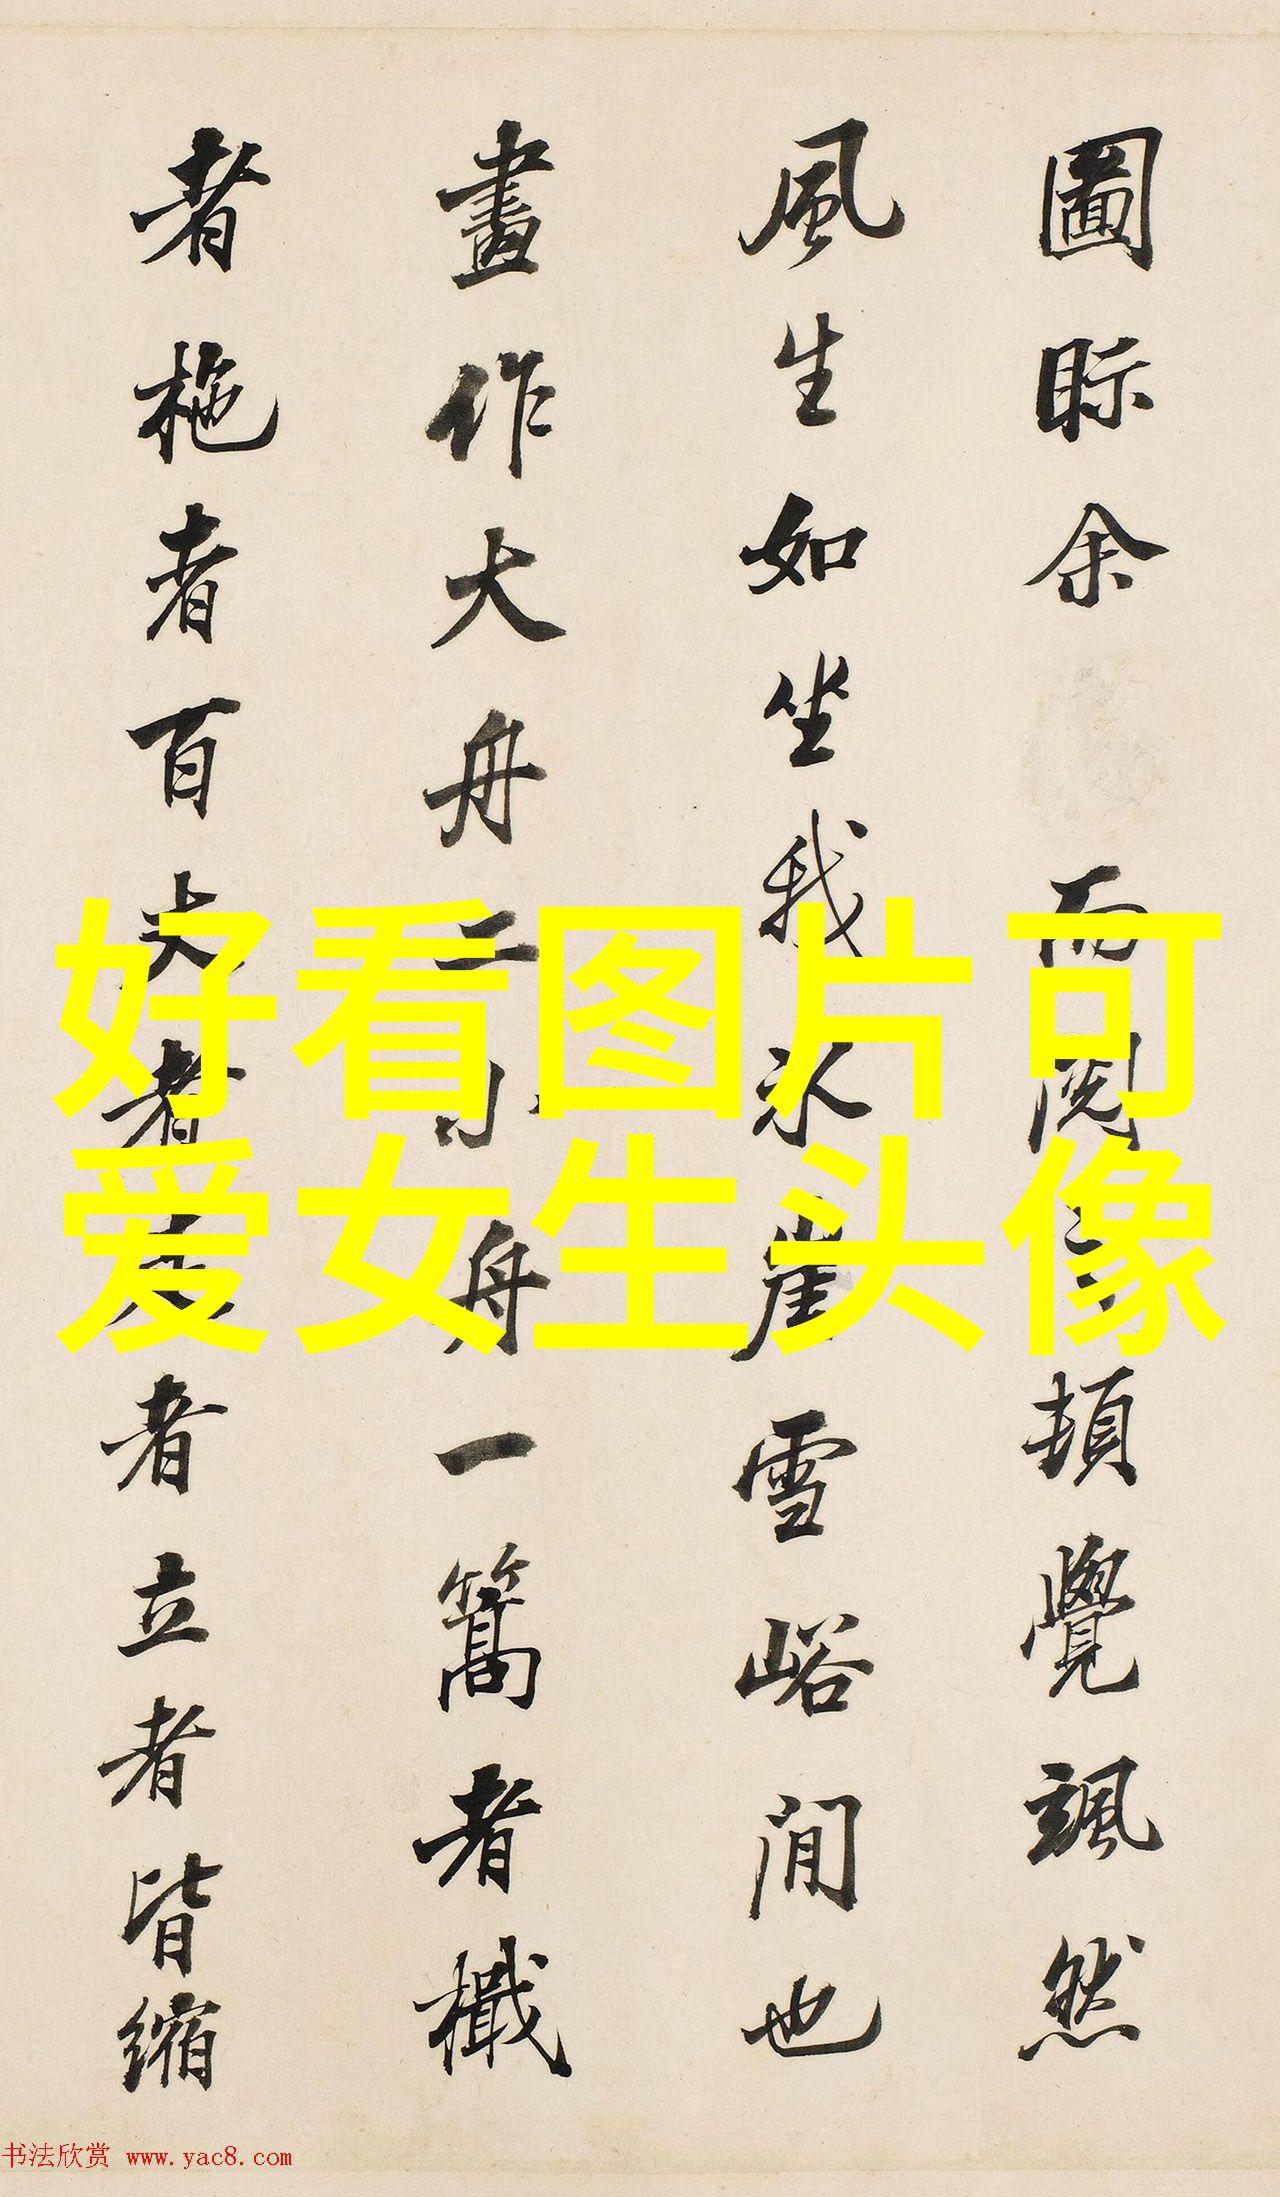 圖眎余 而閱之頓覺颯然
風生如坐我冰崖雪峪間也
畫作大舟二小舟一篙者檝
者柂者百丈者 者立者皆縮
好看图片可
爱女生头像
书法欣赏 www.yac8.com